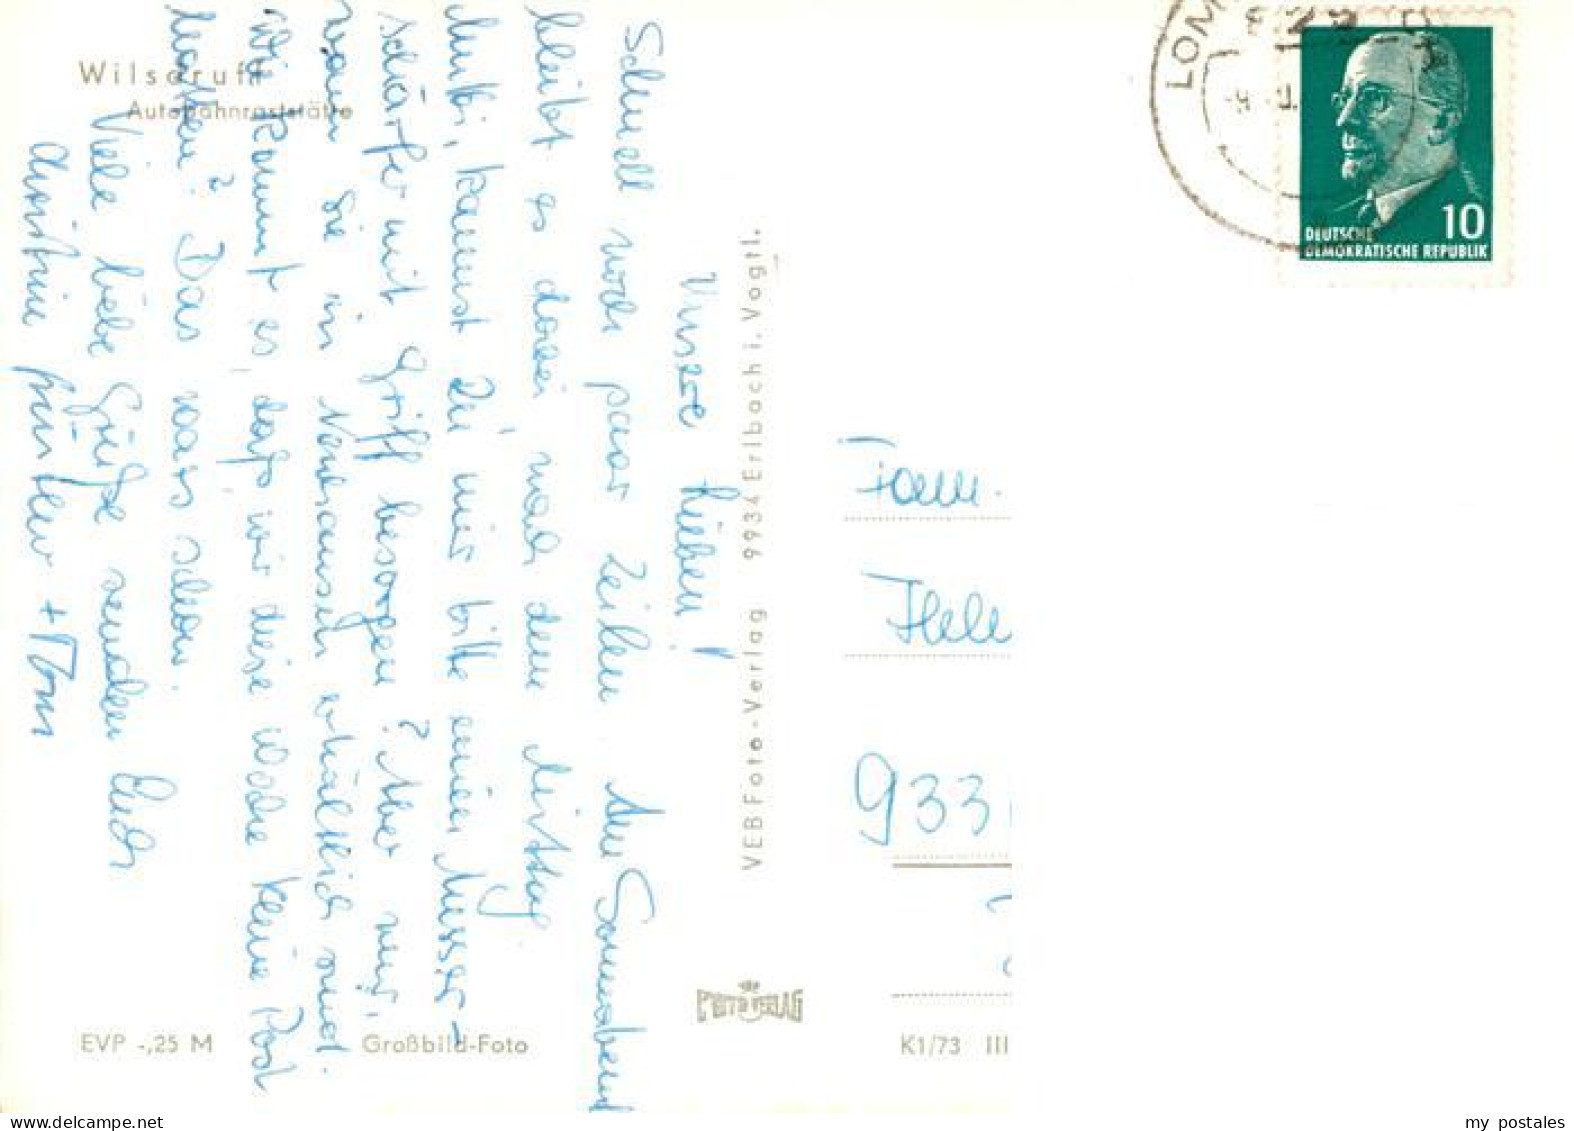 Wilsdruff
Autobahnraststätte
Unsere Lieben!
Schnell noch paar Zeilen. Am Sonnabend
bleibt es dabei nach dem Mittag.
Mutti, kannst Du mir bitte einen Messer-
schärfer mit Griff besorgen? Aber nur,
wann sie in Nordhausen erhältlich sind.
Wie kommt es, daß wir diese Woche keine Post
hatten? Das wars schon.
Viele liebe Grüße senden Euch
Christine Günter + Tom
VEB Foto-Verlag 9934 Erlbach i. Vogtl.
Fam.
933
EVP -,25 M
Großbild-Foto
FOTO VERLAG
K1/73 III
LOM
DEUTSCHE
DEMOKRATISCHE REPUBLIK
10
my postales